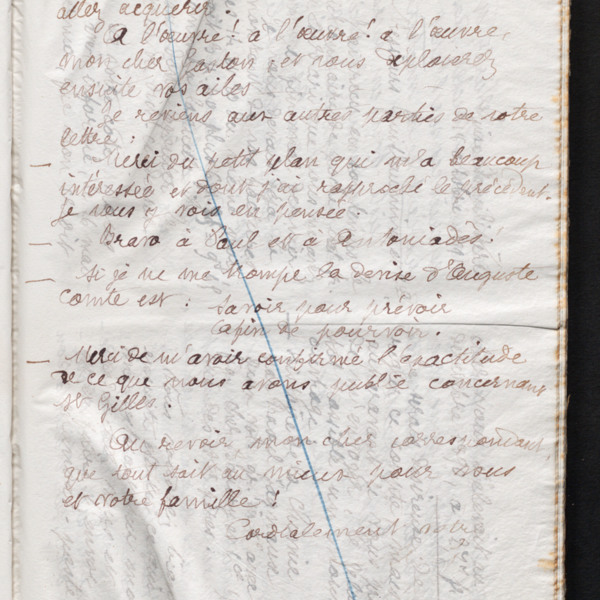 aller acquérir.
A l'œuvre ! à l'œuvre ! à l'œuvre,
mon cher Gaston et vous déploierez
ensuite vos ailes
Je reviens aux autres parties de votre
lettre :
— Merci du petit plan qui m'a beaucoup
intéressée et dont j'ai rapproché le précédent.
Je vous y vois en pensée.
— Bravo à Paul et à Antoniadès !
— Si je ne me trompe la devise d'Auguste
Comte est : Savoir pour prévoir
afin de pourvoir.
— Merci de m'avoir confirmé l'exactitude
de ce que nous avons publié concernant
St Gilles.
Au revoir mon cher correspondant,
que tout soit au mieux pour vous
et votre famille !
Cordialement votre